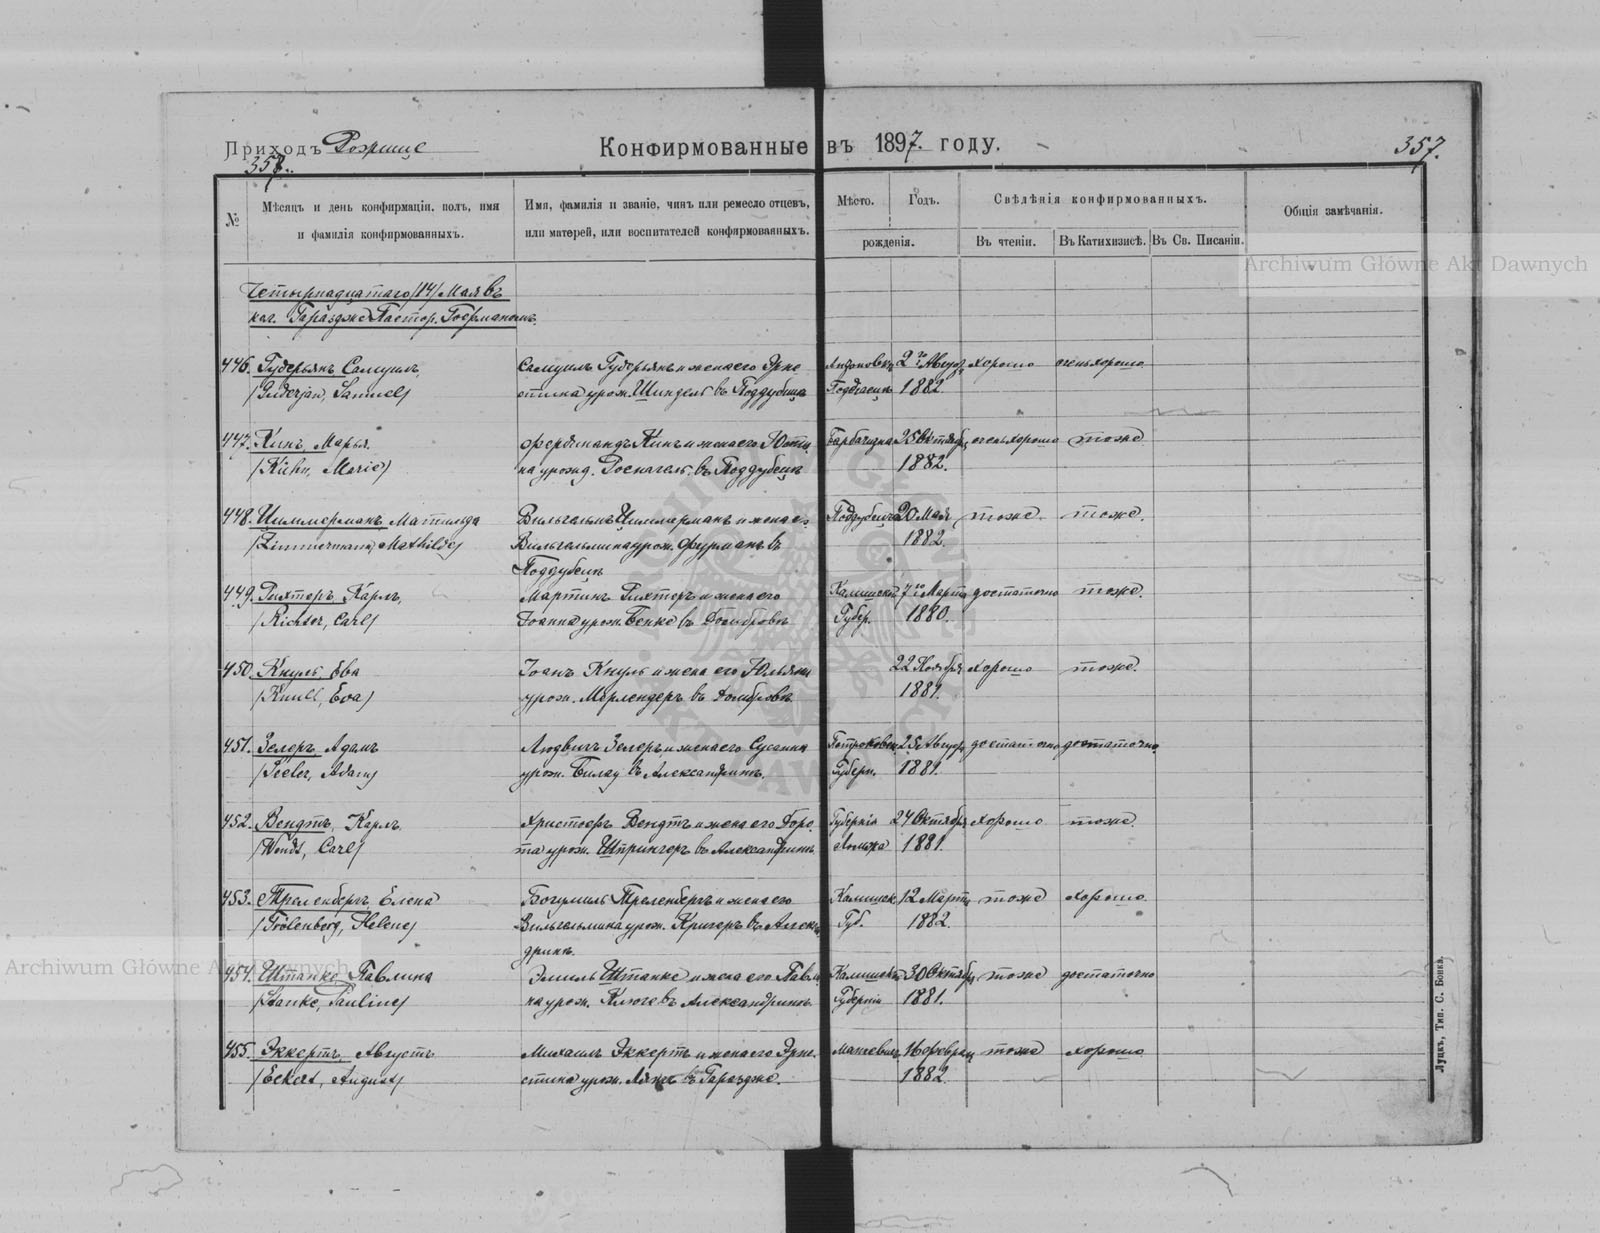 Приходъ Рожище Конфирмованные въ 1897. году. 357.
358.
№ Мѣсяцъ и день конфирмаціи, полъ, имя и фамилія конфирмованныхъ.
Имя, фамилія и званіе, чинъ или ремесло отцевъ, или матерей, или воспитателей конфирмованныхъ.
Мѣсто. Годъ.
рожденія.
Свѣдѣнія конфирмованныхъ.
Въ чтеніи. Въ Катихизисѣ. Въ Св. Писаніи.
Общія замѣчанія.
Archiwum Główne Akt Dawnych
Четырнадцатаго /14/ Мая въ
кол. Гаразджѣ Пастор.
446. Гудерьянъ Самуилъ, Самуилъ Гудерьянъ и жена его Эрне 2го Август. хорошо очень хорошо
/Guderjan, Samuel/ стина урож. Шиндель въ Поддубцахъ 1882.
447. Кинъ, Марья. Фердинандъ Кинъ и жена его Юсти 25 Октябр. очень хорошо тоже
/Kiehn, Marie/ на урожд. въ Поддубецъ 1882.
448. Циммерманъ Матильда Вильгельмъ Циммерманъ и жена его Поддубецъ 20 Мая тоже. тоже.
/Zimmermann, Mathilde/ Вильгельмина урож. Фурманъ въ 1882.
Поддубецъ
449. Рихтеръ, Карлъ, Мартинъ Рихтеръ и жена его Калишской 7го Марта достаточно тоже.
/Richter, Carl/ Іоанна урож. Бенке въ Домбровѣ Губер. 1880.
450. Кнуль Ева Іоанъ Кнуль и жена его Юльяна 22 Ноября хорошо тоже.
/Knull, Eva/ урож. въ Домбровѣ 1881.
451. Зелеръ Адамъ Людвигъ Зелеръ и жена его Сусанна Петроковск. 25 Август. достаточно достаточно
/Seeler, Adam/ урож. Билау въ Александринѣ. Губерн. 1881.
452. Вендтъ, Карлъ Христофъ Вендтъ и жена его Доро Губернія 24 Октября хорошо тоже.
/Wendt, Carl/ та урож. Шпрингеръ въ Александринѣ Ломжа 1881.
453. Треленбергъ, Елена Богумилъ Треленбергъ и жена его Калишск. 12 Марта тоже хорошо
/Trölenberg, Helene/ Вильгельмина урож. Кригеръ въ Алексан Губ. 1882.
дринѣ.
Archiwum Główne Akt Dawnych
454. Штанке, Павлина Эмиль Штанке и жена его Павли Калишска 30 Октябр. тоже достаточно
/Stanke, Pauline/ на урож. Клюге въ Александринѣ. Губернія 1881.
455. Эккертъ, Августъ Михаилъ Эккертъ и жена его Эрне Маневичъ 16 Феврал. тоже хорошо
/Eckert, August/ стина урож. въ Гаразджѣ. 1882.
Луцкъ, Тип. С. Бонка.